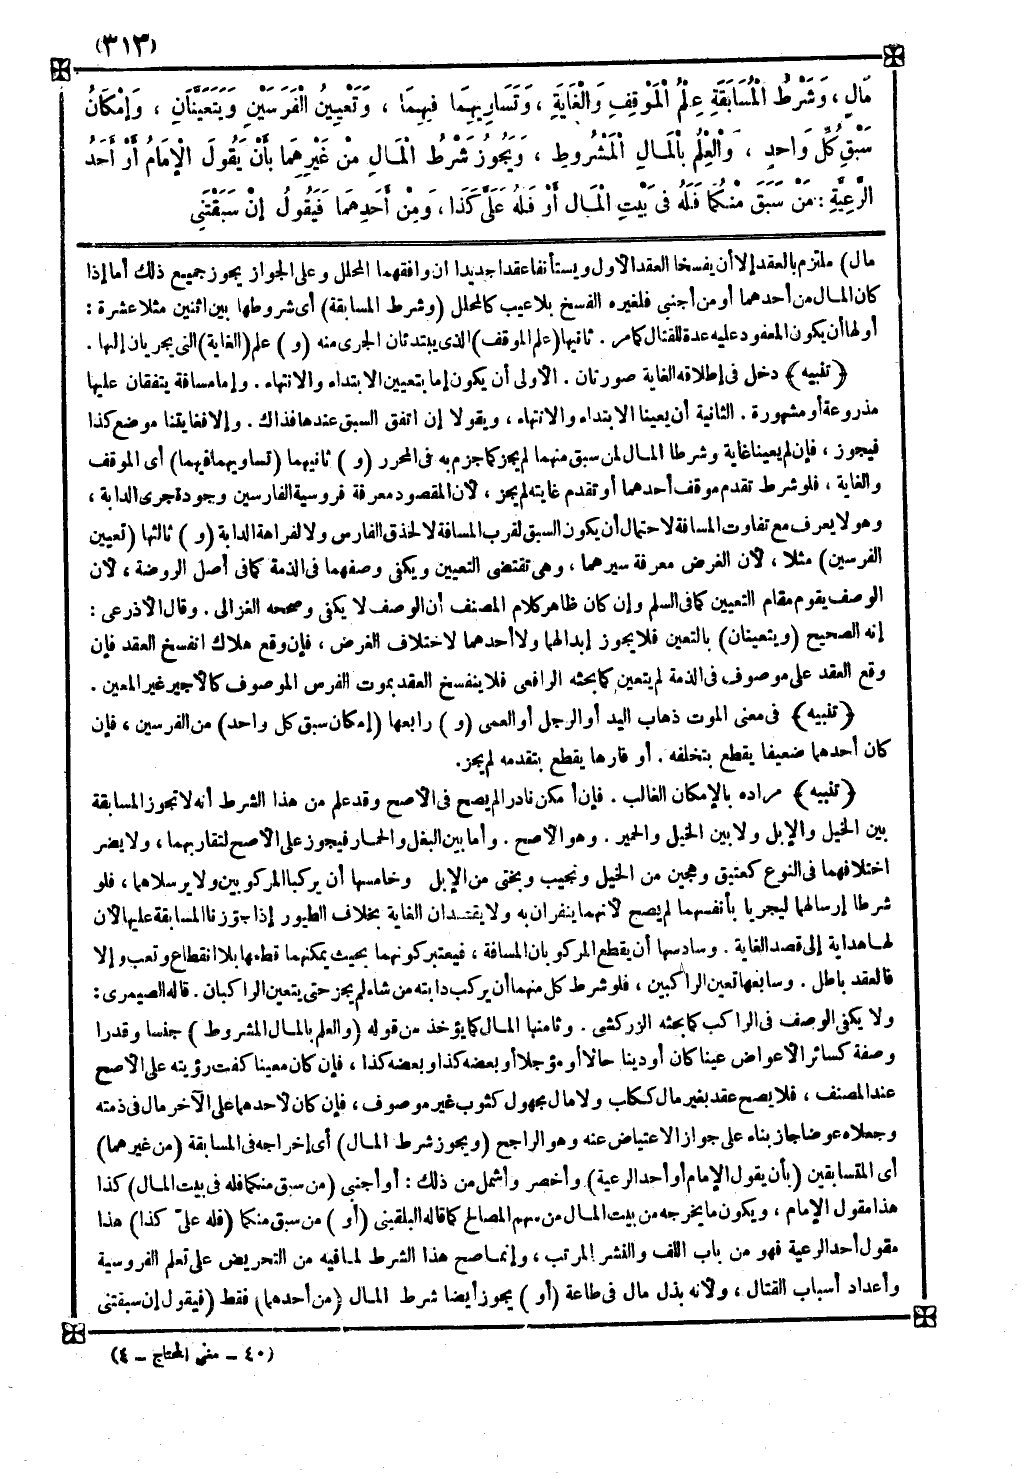 (٣١٣)
مَالٍ ، وَشَرْطُ الْمُسَابَقَةِ عِلْمُ الْمَوْقِفِ وَالْغَايَةِ ، وَتَسَاوِيهِمَا فِيهِمَا ، وَتَعْيِينُ الْفَرَسَيْنِ وَيَتَعَيَّنَانِ ، وَإِمْكَانُ
سَبْقِ كُلِّ وَاحِدٍ ، وَالْعِلْمُ بِالْمَالِ الْمَشْرُوطِ ، وَيَجُوزُ شَرْطُ الْمَالِ مِنْ غَيْرِهِمَا بِأَنْ يَقُولَ الْإِمَامُ أَوْ أَحَدُ
الرَّعِيَّةِ : مَنْ سَبَقَ مِنْكُمَا فَلَهُ فِى بَيْتِ الْمَالِ أَوْ فَلَهُ عَلَىَّ كَذَا ، وَمِنْ أَحَدِهِمَا فَيَقُولُ إِنْ سَبَقْتَنِى
مال) ملتزم بالعقد إلا أن يفسخا العقد الأول ويستأنفا عقدا جديدا ان وافقهما المحلل وعلى الجواز يجوز جميع ذلك أما إذا
كان المال من أحدهما أو من أجنبى فلغيره الفسخ بلا عيب كالمحلل (وشرط المسابقة) أى شروطها بين اثنين مثلا عشرة :
أولها أن يكون المعقود عليه عدة للقتال كما مر . ثانيها (علم الموقف) الذى يبتدئان الجرى منه (و) علم (الغاية) التى يجريان إليها .
﴿تنبيه﴾ دخل فى إطلاقه الغاية صورتان . الأولى أن يكون إما بتعيين الابتداء والانتهاء . وإما مسافة يتفقان عليها
مذروعة أو مشهورة . الثانية أن يعينا الابتداء والانتهاء ، ويقولا إن اتفق السبق عندها فذاك . وإلا فغايتنا موضع كذا
فيجوز ، فإن لم يعينا غاية وشرطا المال لمن سبق منهما لم يجز كما جزم به فى المحرر (و) ثانيهما (تساويهما فيهما) أى الموقف
والغاية ، فلو شرط تقدم موقف أحدهما أو تقدم غايته لم يجز ، لأن المقصود معرفة فروسية الفارسين وجودة جرى الدابة ،
وهو لا يعرف مع تفاوت المسافة لاحتمال أن يكون السبق لقرب المسافة لا لحذق الفارس ولا لفراهة الدابة (و) ثالثها (تعيين
الفرسين) مثلا ، لأن الغرض معرفة سيرهما ، وهى تقتضى التعيين ويكفى وصفهما فى الذمة كما فى أصل الروضة ، لأن
الوصف يقوم مقام التعيين كما فى السلم وإن كان ظاهر كلام المصنف أن الوصف لا يكفى وصححه الغزالى . وقال الأذرعى :
إنه الصحيح (ويتعينان) بالتعين فلا يجوز إبدالهما ولا أحدهما لاختلاف الغرض ، فإن وقع هلاك انفسخ العقد فإن
وقع العقد على موصوف فى الذمة لم يتعين كما بحثه الرافعى فلا ينفسخ العقد بموت الفرس الموصوف كالأجير غير المعين .
﴿تنبيه﴾ فى معنى الموت ذهاب اليد أو الرجل أو العمى (و) رابعها (إمكان سبق كل واحد) من الفرسين ، فإن
كان أحدهما ضعيفا يقطع بتخلفه . أو فارها يقطع بتقدمه لم يجز.
﴿تنبيه﴾ مراده بالإمكان الغالب . فإن أمكن نادرا لم يصح فى الأصح وقد علم من هذا الشرط أنه لا تجوز المسابقة
بين الخيل والإبل ولا بين الخيل والحمير . وهو الأصح . وأما بين البغل والحمار فيجوز على الأصح لتقاربهما ، ولا يضر
اختلافهما فى النوع كعتيق وهجين من الخيل ونجيب وبختى من الإبل وخامسها أن يركبا المركوبين ولا يرسلاهما ، فلو
شرطا إرسالهما ليجريا بأنفسهما لم يصح لأنهما ينفران به ولا يقتصدان الغاية بخلاف الطيور إذا جوّزنا المسابقة عليها لأن
لها هداية إلى قصد الغاية . وسادسها أن يقطع المركوبان المسافة ، فيعتبر كونهما بحيث يمكنهما قطعها بلا انقطاع وتعب وإلا
فالعقد باطل . وسابعها تعين الراكبين ، فلو شرط كل منهما أن يركب دابته من شاء لم يجز حتى يتعين الراكبان . قاله الصيمرى :
ولا يكفى الوصف فى الراكب كما بحثه الزركشى . وثامنها المال كما يؤخذ من قوله (والعلم بالمال المشروط) جنسا وقدرا
وصفة كسائر الأعواض عينا كان أو دينا حالا أو مؤجلا أو بعضه كذا وبعضه كذا ، فإن كان معينا كفت رؤيته على الأصح
عند المصنف ، فلا يصح عقد بغير مال ككلب ولا مال مجهول كثوب غير موصوف ، فإن كان لأحدهما على الآخر مال فى ذمته
وجعلاه عوضا جاز بناء على جواز الاعتياض عنه وهو الراجح (ويجوز شرط المال) أى إخراجه فى المسابقة (من غيرهما)
أى المتسابقين (بأن يقول الإمام أو أحد الرعية) وأخصر وأشمل من ذلك : أو أجنبى (من سبق منكما فله فى بيت المال) كذا
هذا مقول الإمام ، ويكون ما يخرجه من بيت المال من سهم المصالح كما قاله البلقينى (أو) من سبق منكما (فله علىّ كذا) هذا
مقول أحد الرعية فهو من باب اللف والنشر المرتب ، وإنما صح هذا الشرط لما فيه من التحريض على تعلم الفروسية
وأعداد أسباب القتال ، ولأنه بذل مال فى طاعة (أو) يجوز أيضا شرط المال (من أحدهما) فقط (فيقول إن سبقتنى
(٤٠ - مغنى المحتاج - ٤)